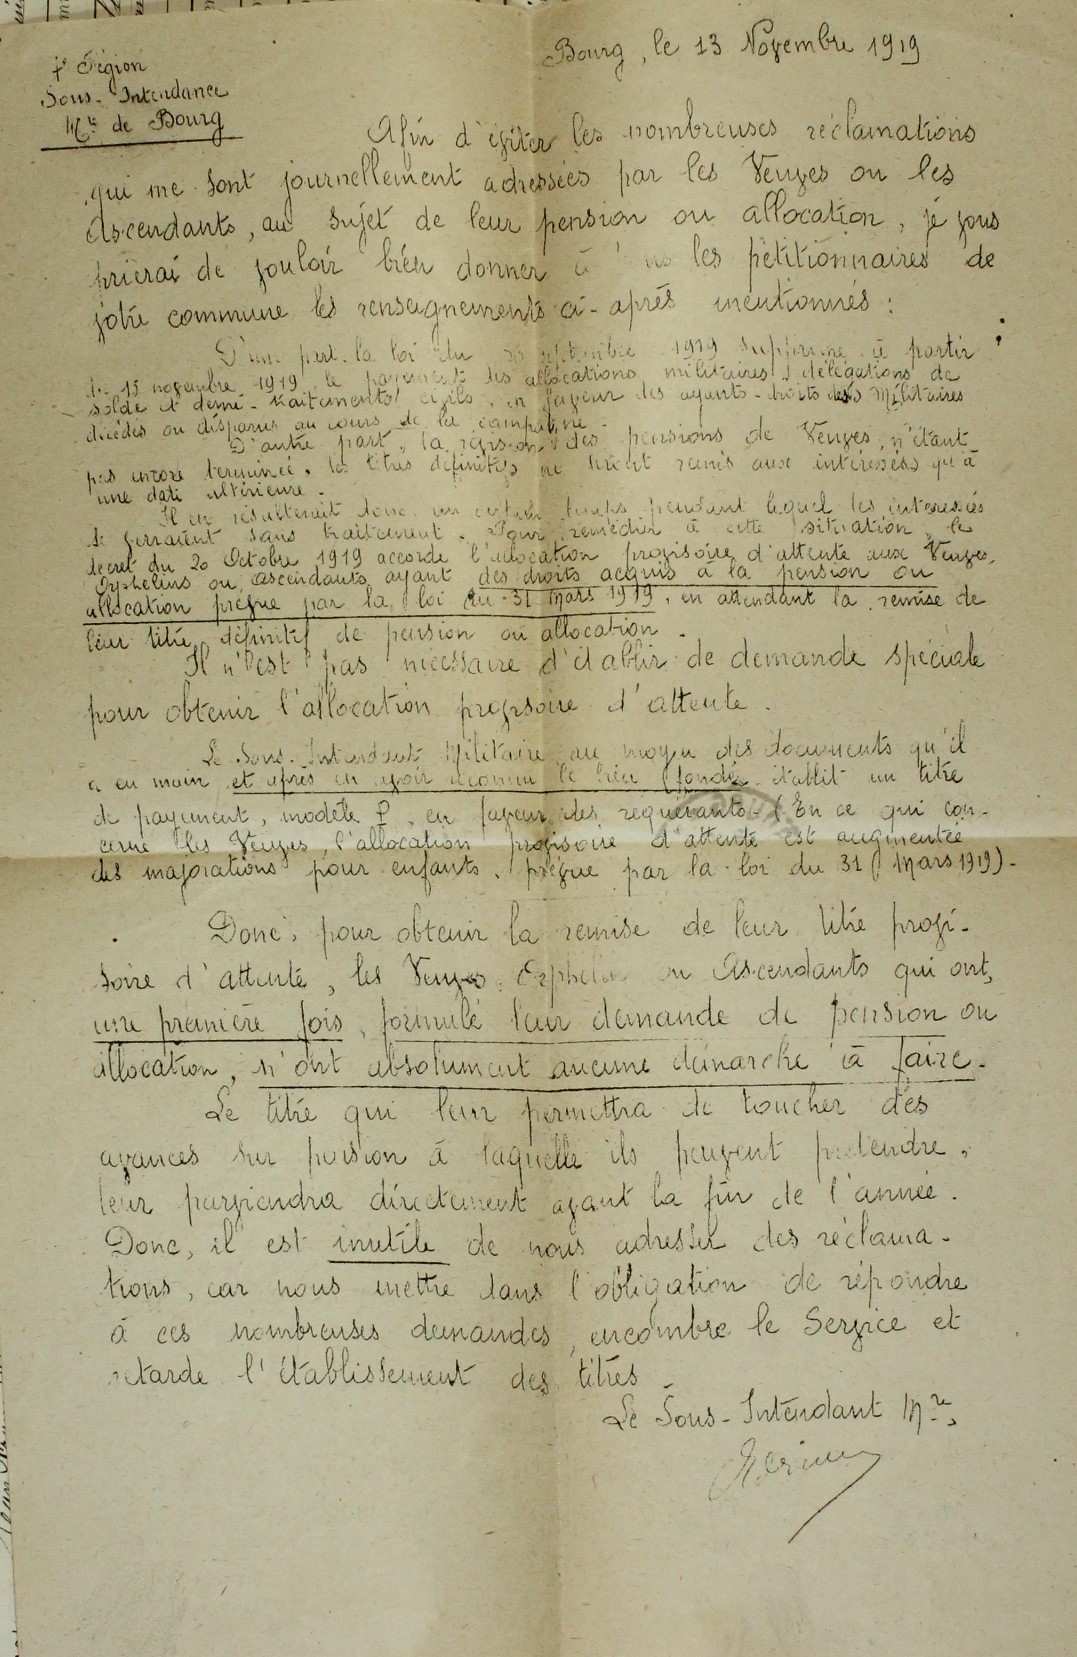 Bourg, le 13 Novembre 1919
7e Région
Sous-Intendance
Mre de Bourg
Afin d'éviter les nombreuses réclamations
qui me sont journellement adressées par les Veuves ou les
Ascendants, au sujet de leur pension ou allocation, je vous
prierai de vouloir bien donner à les pétitionnaires de
votre commune les renseignements ci-après mentionnés :
D'une part la loi du 1919 supprime à partir
du 15 novembre 1919 le payement des allocations militaires, délégations de
solde et demi-traitements civils, en faveur des ayants-droits des Militaires
décédés ou disparus au cours de la campagne.
D'autre part, la révision des pensions de Veuves n'étant
pas encore terminée, les titres définitifs ne seront remis aux intéressés qu'à
une date ultérieure.
Il en résulterait donc un certain temps pendant lequel les intéressés
se verraient sans traitement. Pour remédier à cette situation, le
décret du 20 Octobre 1919 accorde l'allocation provisoire d'attente aux Veuves,
Orphelins ou ascendants ayant des droits acquis à la pension ou
allocation prévue par la loi du 31 Mars 1919, en attendant la remise de
leur titre définitif de pension ou allocation.
Il n'est pas nécessaire d'établir de demande spéciale
pour obtenir l'allocation provisoire d'attente.
Le Sous-Intendant Militaire au moyen des documents qu'il
a en main et après en avoir reconnu le bien fondé établit un titre
de payement, modèle P, en faveur des requérants. (En ce qui con-
cerne les Veuves, l'allocation provisoire d'attente est augmentée
des majorations pour enfants, prévue par la loi du 31 Mars 1919)-
Donc, pour obtenir la remise de leur titre provi-
soire d'attente, les Veuves, Orphelins ou Ascendants qui ont,
une première fois, formulé leur demande de pension ou
allocation, n'ont absolument aucune démarche à faire.
Le titre qui leur permettra de toucher des
avances sur pension à laquelle ils peuvent prétendre,
leur parviendra directement avant la fin de l'année.
Donc, il est inutile de nous adresser des réclama-
tions, car nous mettre dans l'obligation de répondre
à ces nombreuses demandes, encombre le Service et
retarde l'établissement des titres.
Le Sous-Intendant Mre,